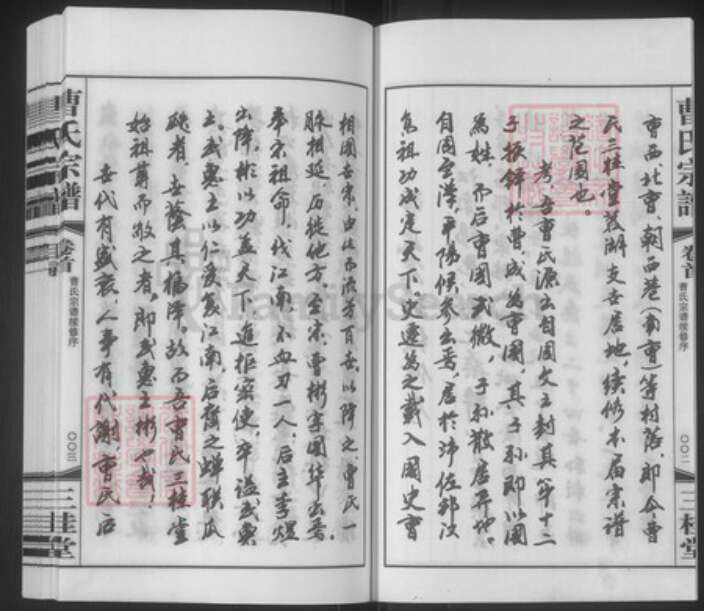 曹氏宗譜
卷首
曹氏宗谱续修序
〇〇二
三桂堂
曹西、北曹、朝西巷(南曹)等村落,即今曹
氏三桂堂敦睦支世居地,续修本届宗谱
之范围也。
考,吾曹氏源出自周文王封其第十二
子振铎於曹成为曹國,其子孙即以國
為姓,而后曹國式微,子孙散居异地。
自周至漢,平陽候参出焉,居於沛佐邦汉
高祖功成定天下。史遷為之载入國史曹
相國世家,由此而流方百世,以降之,曹氏一
脉相延,历徙他方至宋,曹彬宋國华出焉。
奉宋祖命,伐江南不血刃一人,后主李煜
出降,彬以功盖天下,進枢密使,卒謚武惠
王。武惠王以仁爱复江南,后裔之蝉联瓜
瓞者,世蔭其福澤故而吾曹氏三桂堂
始祖尊而敬之者,即武惠王彬也哉!
世代有盛衰,人事有代謝,曹氏后
曹氏宗譜
卷首
曹氏宗谱续修序
〇〇三
三桂堂
FamilySearch